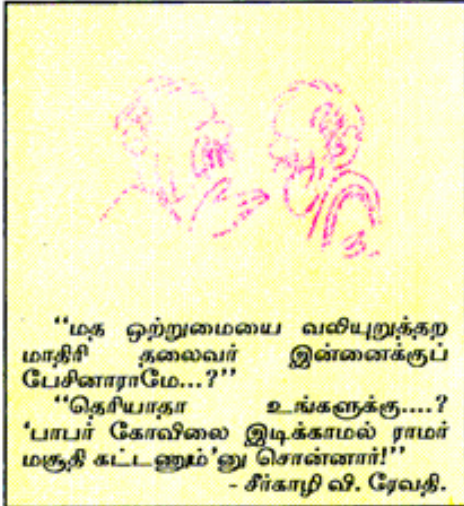 “மத ஒற்றுமையை வலியுறுத்தற
மாதிரி தலைவர் இன்னைக்குப்
பேசினாராமே...?”
“தெரியாதா உங்களுக்கு....?
‘பாபர் கோவிலை இடிக்காமல் ராமர்
மசூதி கட்டணும்’னு சொன்னார்!”
- சீர்காழி வி. ரேவதி.